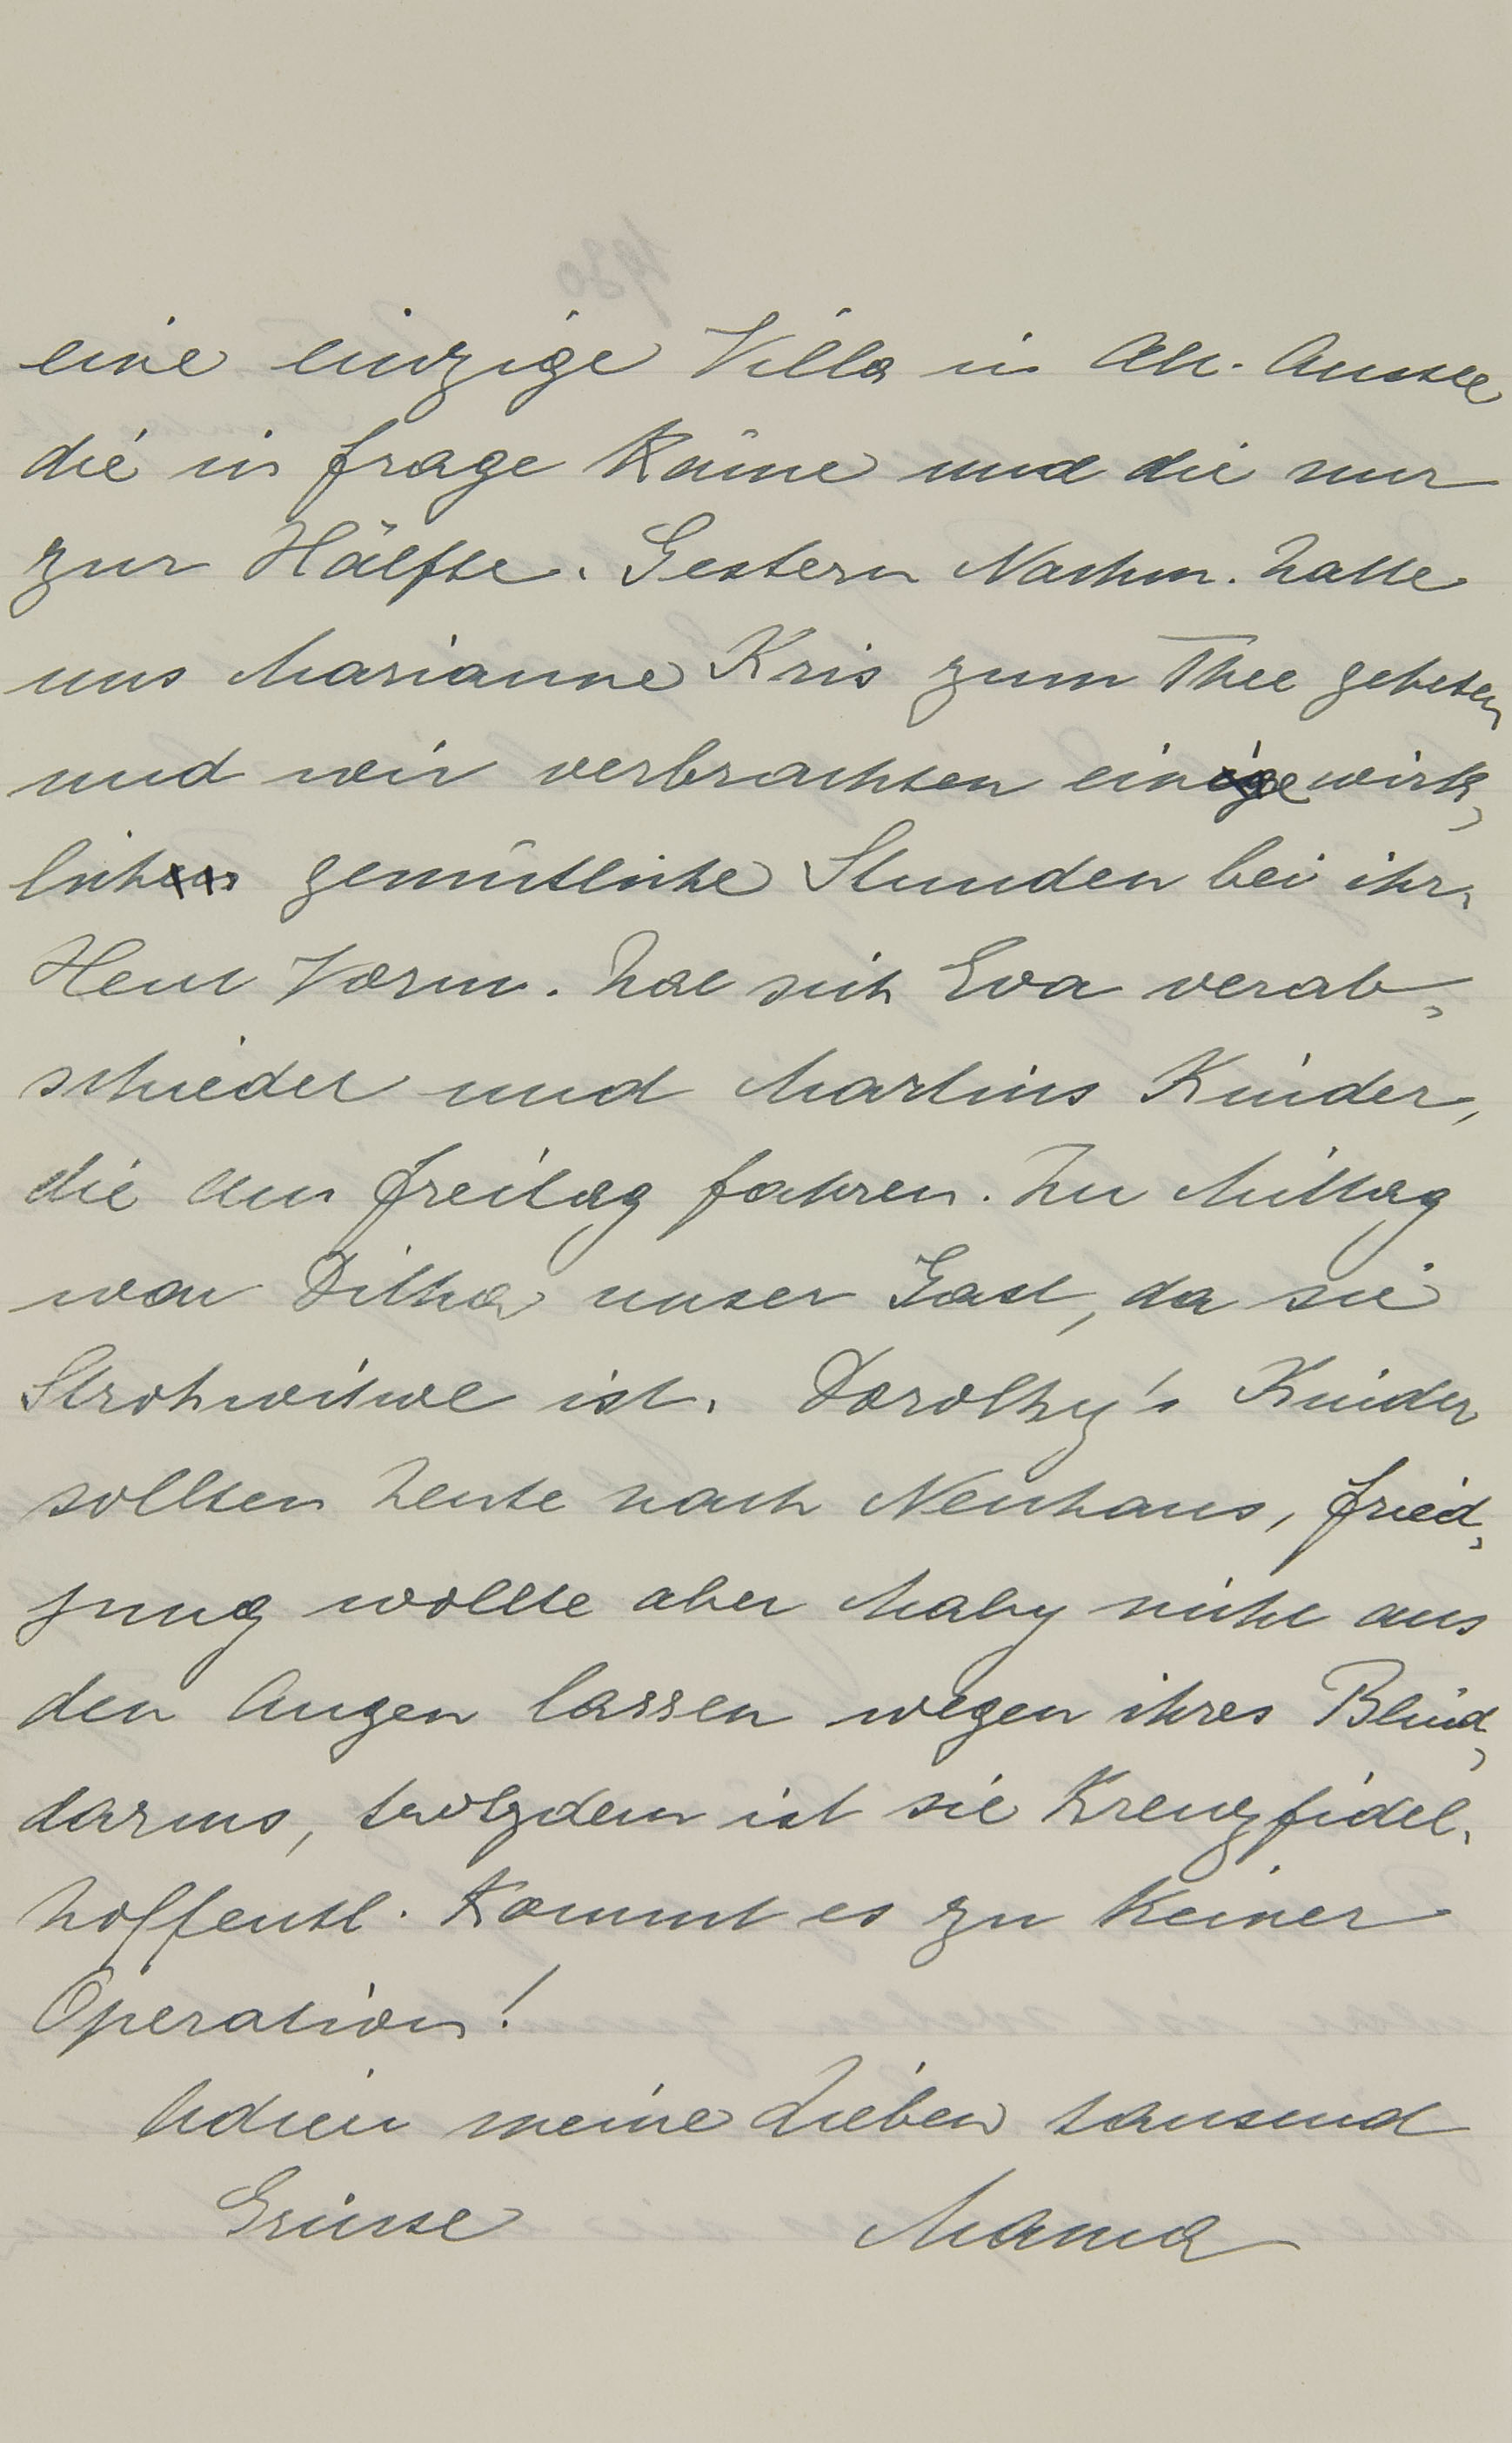 eine einzige Villa in Alt-Aussee
die in Frage käme und die nur
zur Hälfte. Gestern Nachm. hatte
uns Marianne Kris zum Thee gebeten
und wir verbrachten einige wirk,
liche gemütliche Stunden bei ihr,
Heut Vorm. hat sich Eva verab,
schiedet und Martins Kinder,
die am Freitag fahren. Zu Mittag
war Ditha unser Gast, da sie
Strohwitwe ist. Dorothy's Kinder
sollten heute nach Neuhaus, Fried,
jung wollte aber Maby nicht aus
den Augen lassen wegen ihres Blind,
darms, trotzdem ist sie Kreuzfidel.
hoffentl. Kommt es zu Keiner
Operation!
Adieu meine Lieben tausend
Grüsse Mama